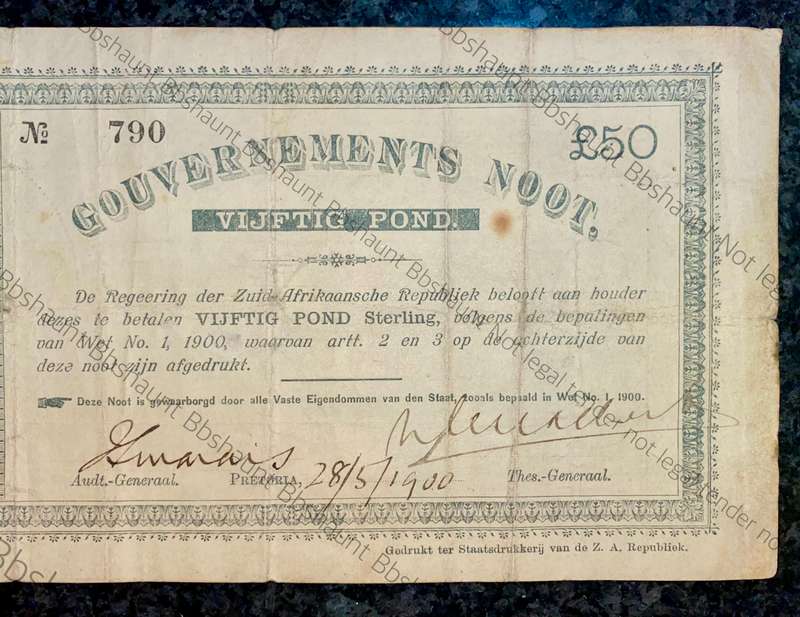 № 790
£50
GOUVERNEMENTS NOOT,
VIJFTIG POND.
De Regeering der Zuid-Afrikaansche Republiek belooft aan houder
dezes te betalen VIJFTIG POND Sterling, volgens de bepalingen
van Wet No. 1, 1900, waarvan artt. 2 en 3 op de achterzijde van
deze noot zijn afgedrukt.
Deze Noot is gewaarborgd door alle Vaste Eigendommen van den Staat, zooals bepaald in Wet No. 1, 1900.
Audt.-Generaal. PRETORIA, 28/5/1900 Thes.-Generaal.
Gedrukt ter Staatsdrukkerij van de Z. A. Republiek.
Bbshaunt Bbshaunt Bbshaunt Bbshaunt
Not legal tender not legal tender